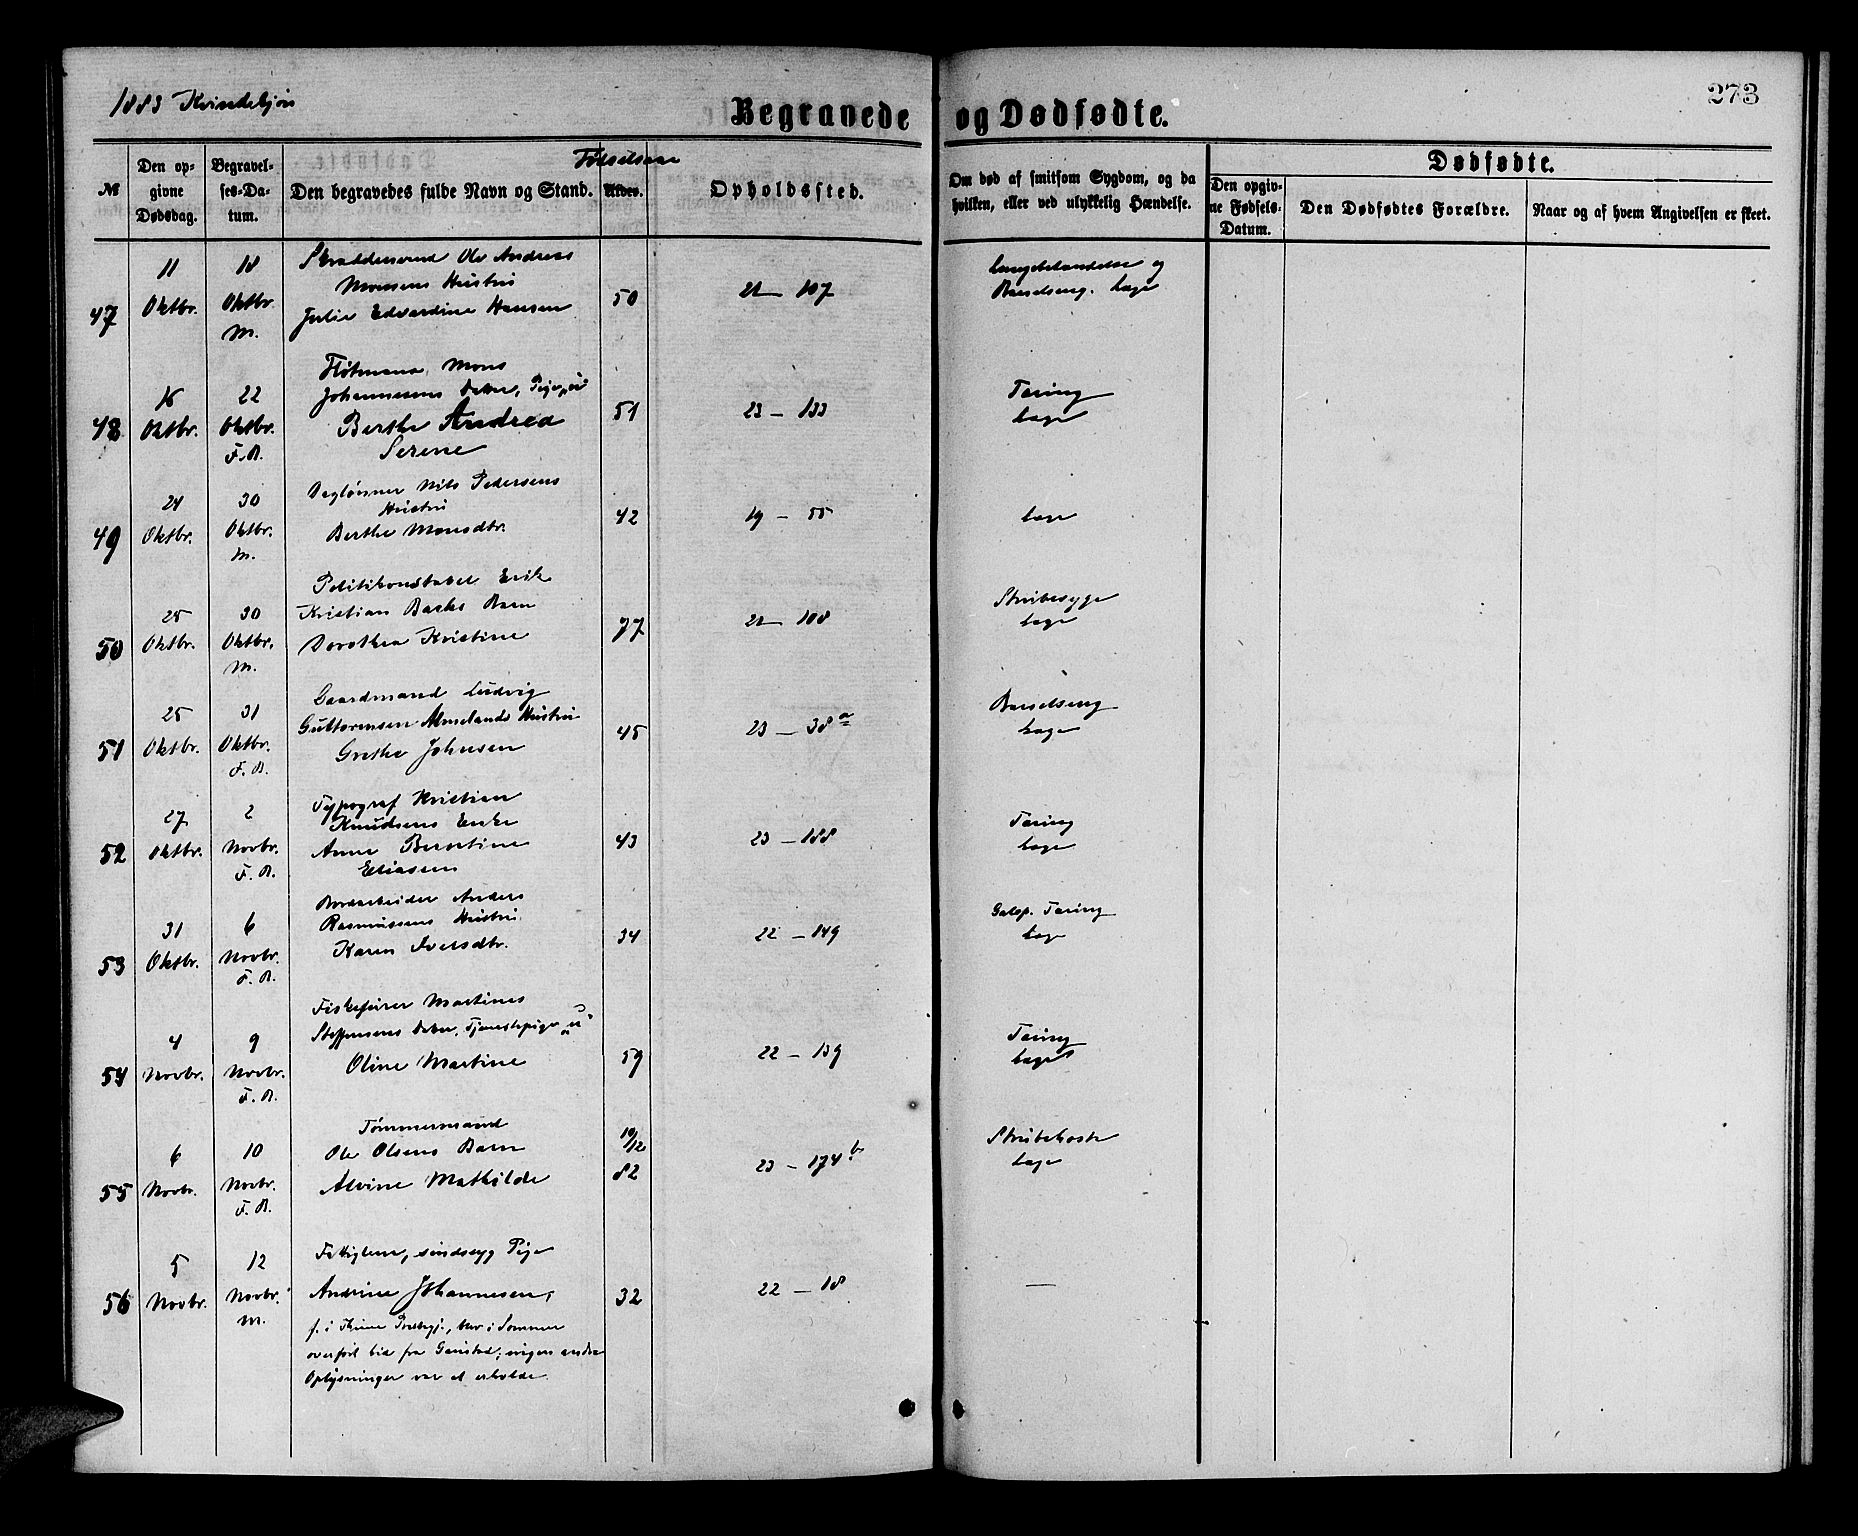 1883 Kvindekjøn
Begravede og Dødfødte.
273
№
Den opgivne Dødsdag.
Begravelses-Datum.
Den begravedes fulde Navn og Stand.
Fødselsaar
Alder.
Opholdssted.
Om død af smitsom Sygdom, og da hvilken, eller ved ulykkelig Hændelse.
Dødfødte.
Den opgivne Fødsels-Datum.
Den Dødfødtes Forældre.
Naar og af hvem Angivelsen er skeet.
47
11 Oktbr.
18 Oktbr. M.
Skræddersvend Ole Andreas
Monsens Hustru
Julie Edvardine Hansen
50
21 - 107
Lungebetændelse og
Barselseng. Læge
48
16 Oktbr.
22 Oktbr. F. B.
Fløtmand Mons
Johannesens Datter, Pige,
Berthe Andrea
Serene
51
23 - 133
Tæring
Læge
49
24 Oktbr.
30 Oktbr. M.
Daglønner Nils Pedersens
Hustru
Berthe Monsdtr.
42
19 - 55
Læge
50
25 Oktbr.
30 Oktbr. M.
Politikonstabel Erik
Kristian Barn
Dorothea Kristine
77
21 - 108
Strubesyge
Læge
51
25 Oktbr.
31 Oktbr. F. B.
Gaardmand Ludvig
Guttormsen Almelands Hustru
Grethe Johnsen
45
23 - 38 a
Barselseng
Læge
52
27 Oktbr.
2 Novbr. F. B.
Typograf Kristian
Knudsens Enke
Anne Berntine
Eliasen
43
23 - 188
Tæring
Læge
53
31 Oktbr.
6 Novbr. F. B.
Anders
Rasmussens Hustru
Karen Iversdtr.
34
22 - 149
Galop. Tæring
Læge
54
4 Novbr.
9 Novbr. F. B.
Fiskefører Martines
Steffensens Datter, Tjenestepige
Oline Martine
59
22 - 139
Tæring
Læge
55
6 Novbr.
10 Novbr. F. B.
Tømmermand
Ole Olsens Barn
Alvine Mathilde
10/12
82
23 - 174 b
Strubehoste
Læge
56
5 Novbr.
12 Novbr. M.
Fattiglem, sindssyg Pige
Andrine Johannesen,
f. i Kinn Præstegj., blev i Sommer
overført hid fra Gaustad; ingen andre
Oplysninger var at erholde.
32
22 - 18
—